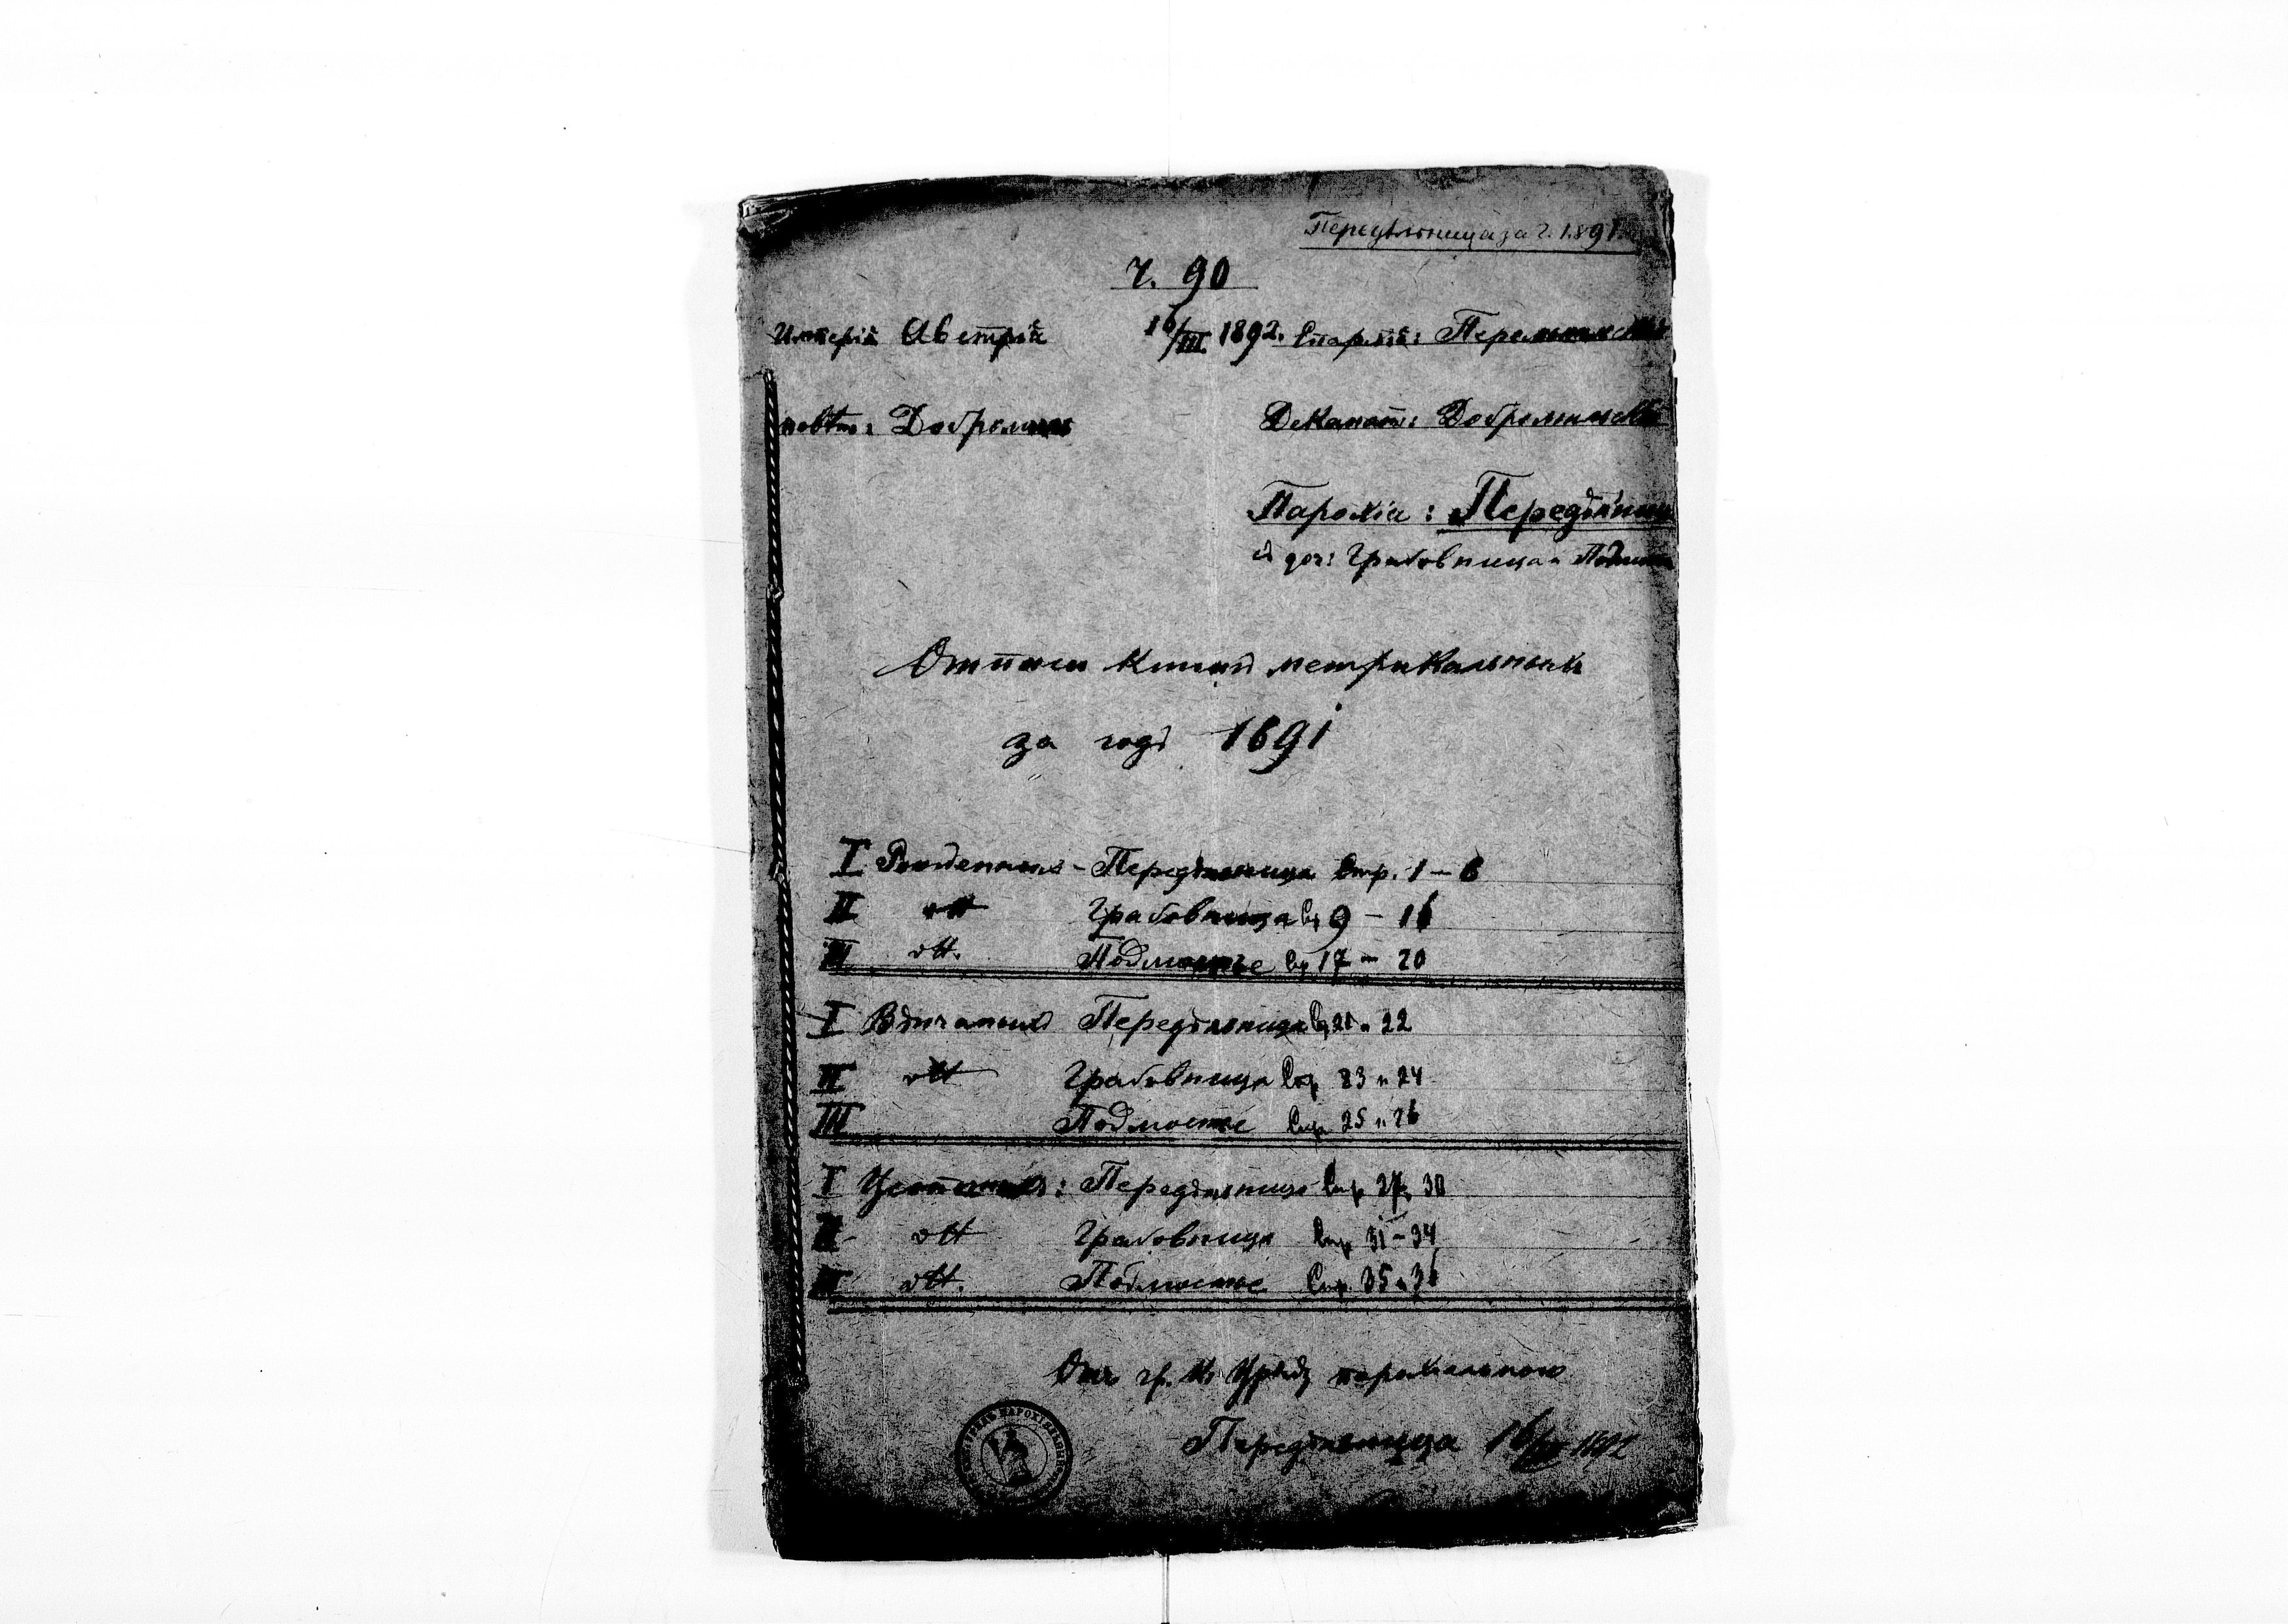 Передѣльница за г. 1891.
Ч. 90
Имперія Австрія 16/III 1892. Епархія: Перемышльска
повѣт: Добромиль Деканатъ: Добромильскій
Парохія: Передѣльни
съ доч: Грабовница и Подмост
Отписи книгъ метрикальныхъ
за годъ 1891
I Рожденныхъ - Передѣльница Стр. 1 - 8
II dtt Грабовница Стр 9 - 16
III dtt. Подмостье Стр 17 - 20
I Вѣнчаныхъ Передѣльница Стр 21 и 22
II dtt Грабовница Стр 23 и 24
III Подмостье Стр 25 и 26
I Усопшихъ: Передѣльница Стр 27 30
II dtt Грабовница Стр 31 - 34
III dtt. Подмостье Стр. 35 и 36
Отъ гр. к. Уряду парохіального
Передѣльница 16/III 1892